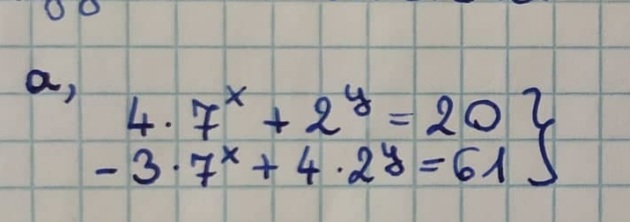 a,
4 · 7^x + 2^y = 20 }
- 3 · 7^x + 4 · 2^y = 61